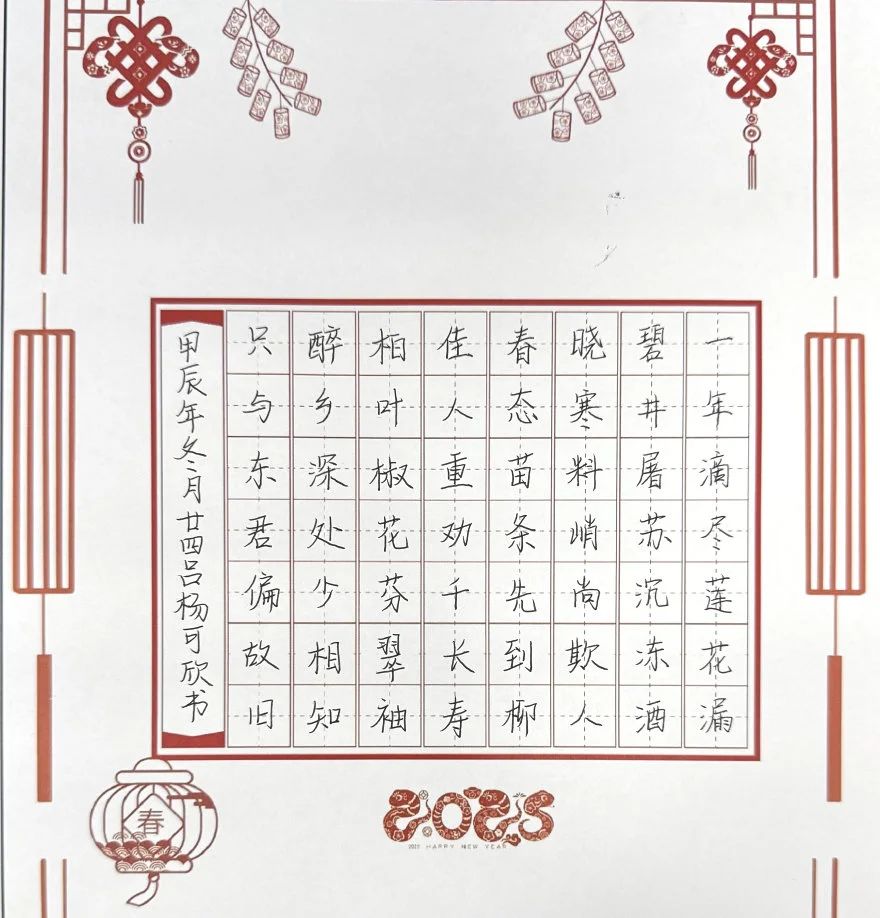 一年滴尽莲花漏
碧井屠苏沉冻酒
晓寒料峭尚欺人
春态苗条先到柳
佳人重劝千长寿
柏叶椒花芬翠袖
醉乡深处少相知
只与东君偏故旧
甲辰年冬月廿四吕杨可欣书
春
2025
2025 HAPPY NEW YEAR